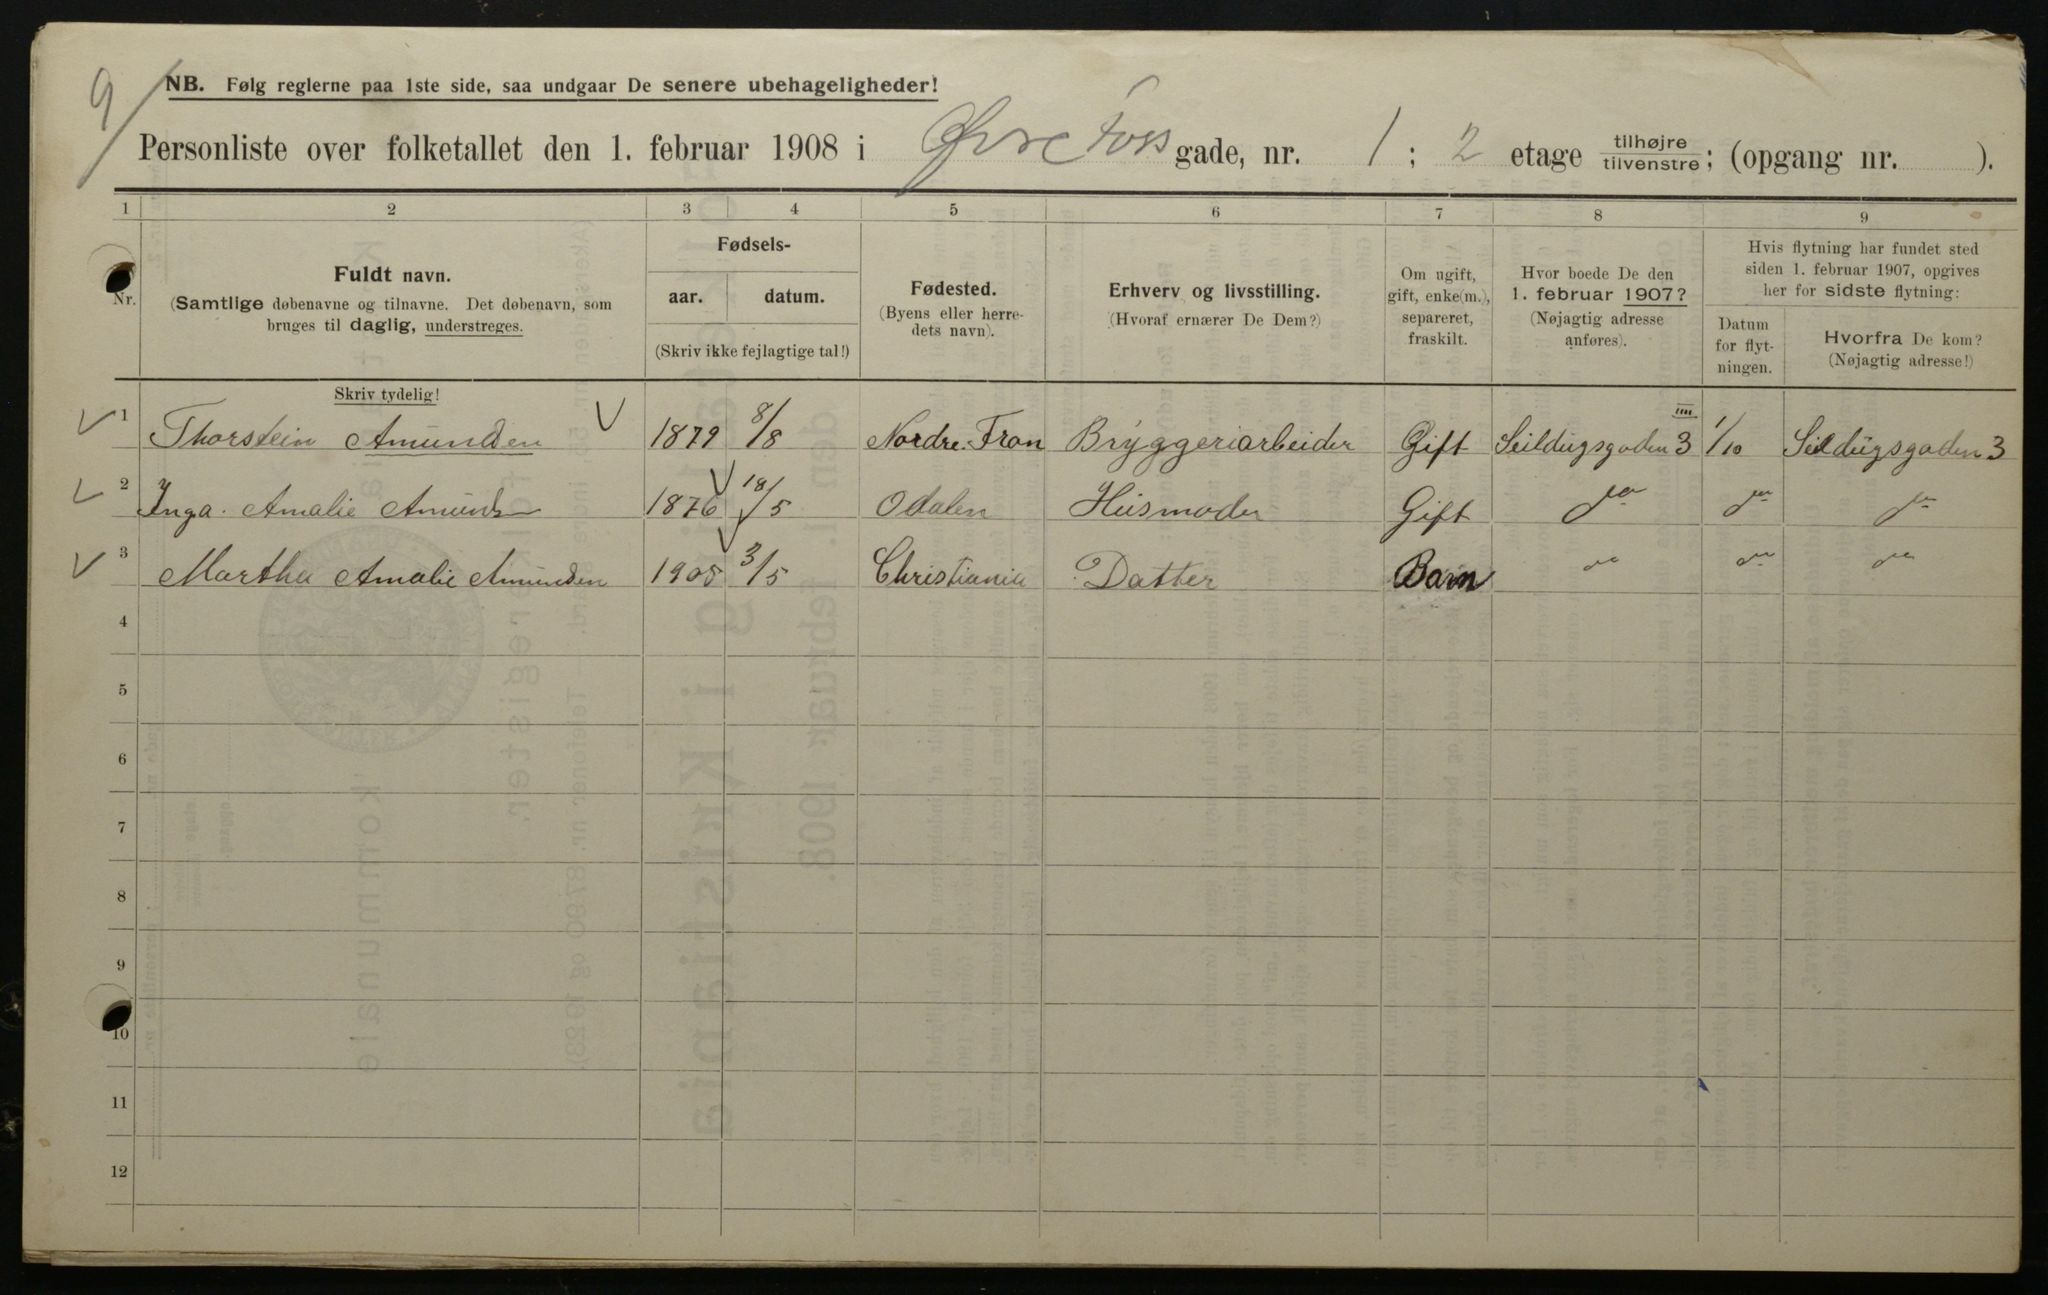 9/
NB. Følg reglerne paa 1ste side, saa undgaar De senere ubehageligheder!
Personliste over folketallet den 1. februar 1908 i Øvre Foss gade, nr. 1; 2 etage tilhøjre tilvenstre; (opgang nr. ).
1 2 3 4 5 6 7 8 9
Nr.
Fuldt navn.
(Samtlige døbenavne og tilnavne. Det døbenavn, som
bruges til daglig, understreges.
Skriv tydelig!
Fødsels-
aar. datum.
(Skriv ikke fejlagtige tal!)
Fødested.
(Byens eller herre-
dets navn).
Erhverv og livsstilling.
(Hvoraf ernærer De Dem?)
Om ugift,
gift, enke(m.),
separeret,
fraskilt.
Hvor boede De den
1. februar 1907?
(Nøjagtig adresse
anføres).
Hvis flytning har fundet sted
siden 1. februar 1907, opgives
her for sidste flytning:
Datum
for flyt-
ningen.
Hvorfra De kom?
(Nøjagtig adresse!)
1 Thorstein Amundsen 1879 8/8 Nordre. Fron Bryggeriarbeider Gift Seildugsgaden 3 IIII 1/10 Seildugsgaden 3
2 Inga. Amalie Amunds 1876 18/5 Odalen Husmoder Gift do do do
3 Martha Amalie Amundsen 1905 3/5 Christiania Datter Barn do do do
4
5
6
7
8
9
10
11
12